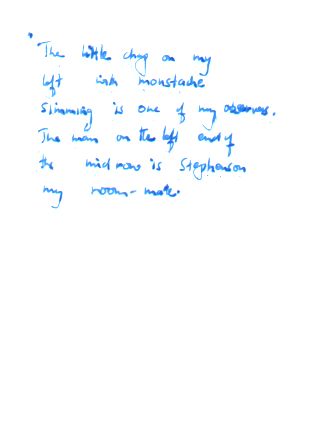 The little chap on my
left with moustache
slimming is one of my observers.
The man on the left end of
the mid row is Stephenson
my room-mate.